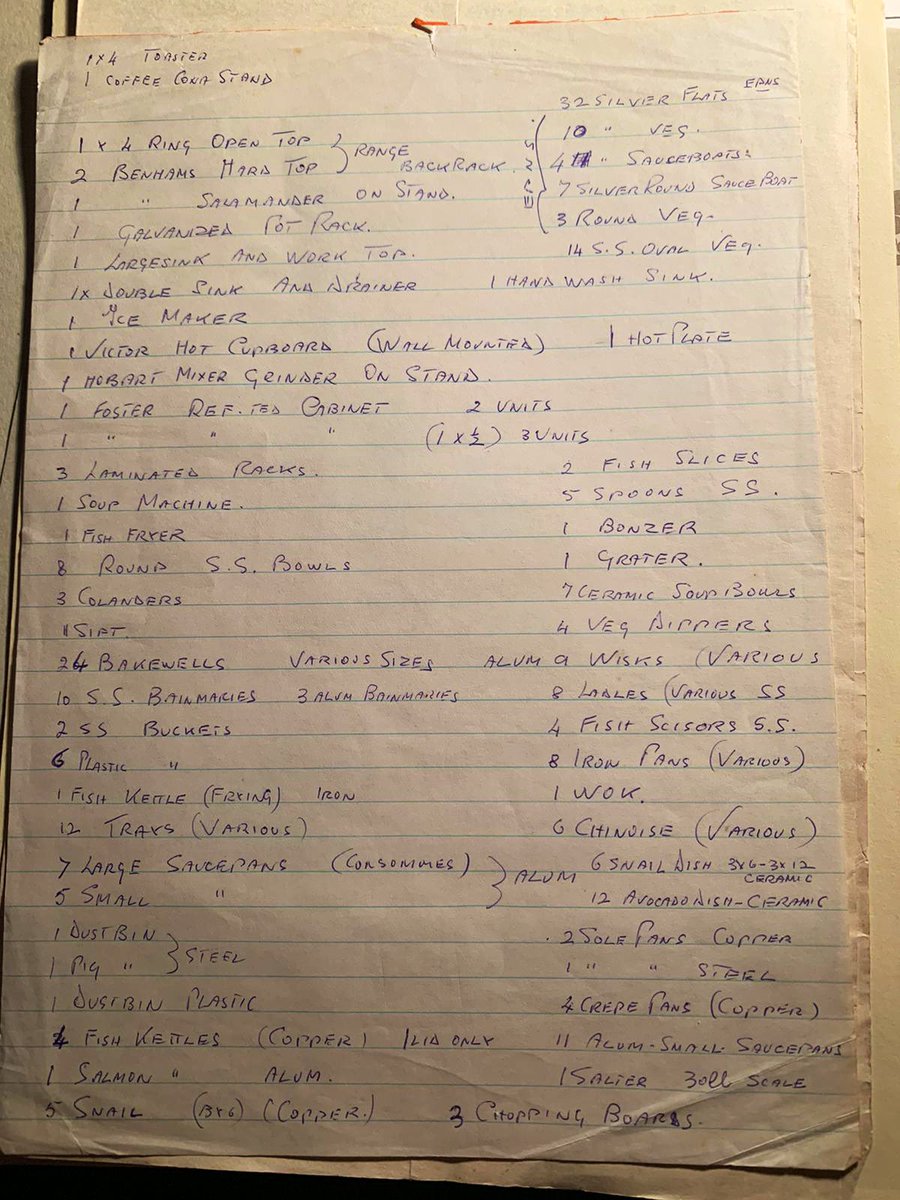 1x4 TOASTER
1 COFFEE CONA STAND
32 SILVER FLATS EPNS
1 x 4 RING OPEN TOP } RANGE 10 " VEG.
2 BENHAMS HARD TOP BACKRACK. 4 " SAUCEBOATS
1 " SALAMANDER ON STAND. 7 SILVER ROUND SAUCE BOAT
1 GALVANIZED POT RACK. 3 ROUND VEG.
1 LARGESINK AND WORK TOP. 14 S.S. OVAL VEG.
1x DOUBLE SINK AND DRAINER 1 HAND WASH SINK.
1 ICE MAKER
1 VICTOR HOT CUPBOARD (WALL MOUNTED) 1 HOT PLATE
1 HOBART MIXER GRINDER ON STAND.
1 FOSTER REF.TED CABINET 2 UNITS
1 " " " (1 x ½) 3 UNITS
3 LAMINATED RACKS. 2 FISH SLICES
1 SOUP MACHINE. 5 SPOONS SS.
1 FISH FRYER 1 BONZER
8 ROUND S.S. BOWLS 1 GRATER.
3 COLANDERS 7 CERAMIC SOUP BOWLS
SIFT. 4 VEG DIPPERS
24 BAKEWELLS VARIOUS SIZES ALUM 9 WISKS (VARIOUS
10 S.S. BAINMARIES 3 ALUM BAINMARIES 8 LADLES (VARIOUS SS
2 SS BUCKETS 4 FISH SCISORS S.S.
6 PLASTIC " 8 IRON PANS (VARIOUS)
1 FISH KETTLE (FRYING) IRON 1 WOK.
12 TRAYS (VARIOUS) 6 CHINOISE (VARIOUS)
7 LARGE SAUCEPANS (CONSOMMES) } ALUM 6 SNAIL DISH 3x6-3x12 CERAMIC
5 SMALL " 12 AVOCADO DISH-CERAMIC
1 DUSTBIN } STEEL 2 SOLE PANS COPPER
1 PIG " 1 " " STEEL
1 DUSTBIN PLASTIC 4 CREPE PANS (COPPER)
4 FISH KETTLES (COPPER) 1 LID ONLY 11 ALUM-SMALL-SAUCEPANS
1 SALMON " ALUM. 1 SALTER SCALE
5 SNAIL (3x6) (COPPER.) 3 CHOPPING BOARDS.